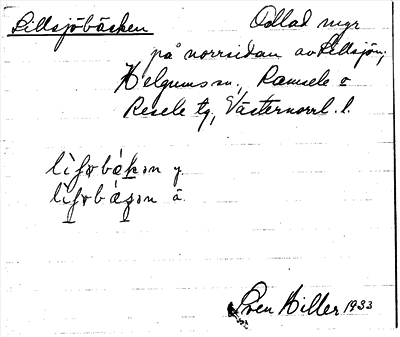 Lillsjöbäcken Odlad myr
på norrsidan av Lillsjön,
Helgums sn., Ramsele o
Resele tg, Västernorrl. l.
y.
ä.
Sven Hiller 1933